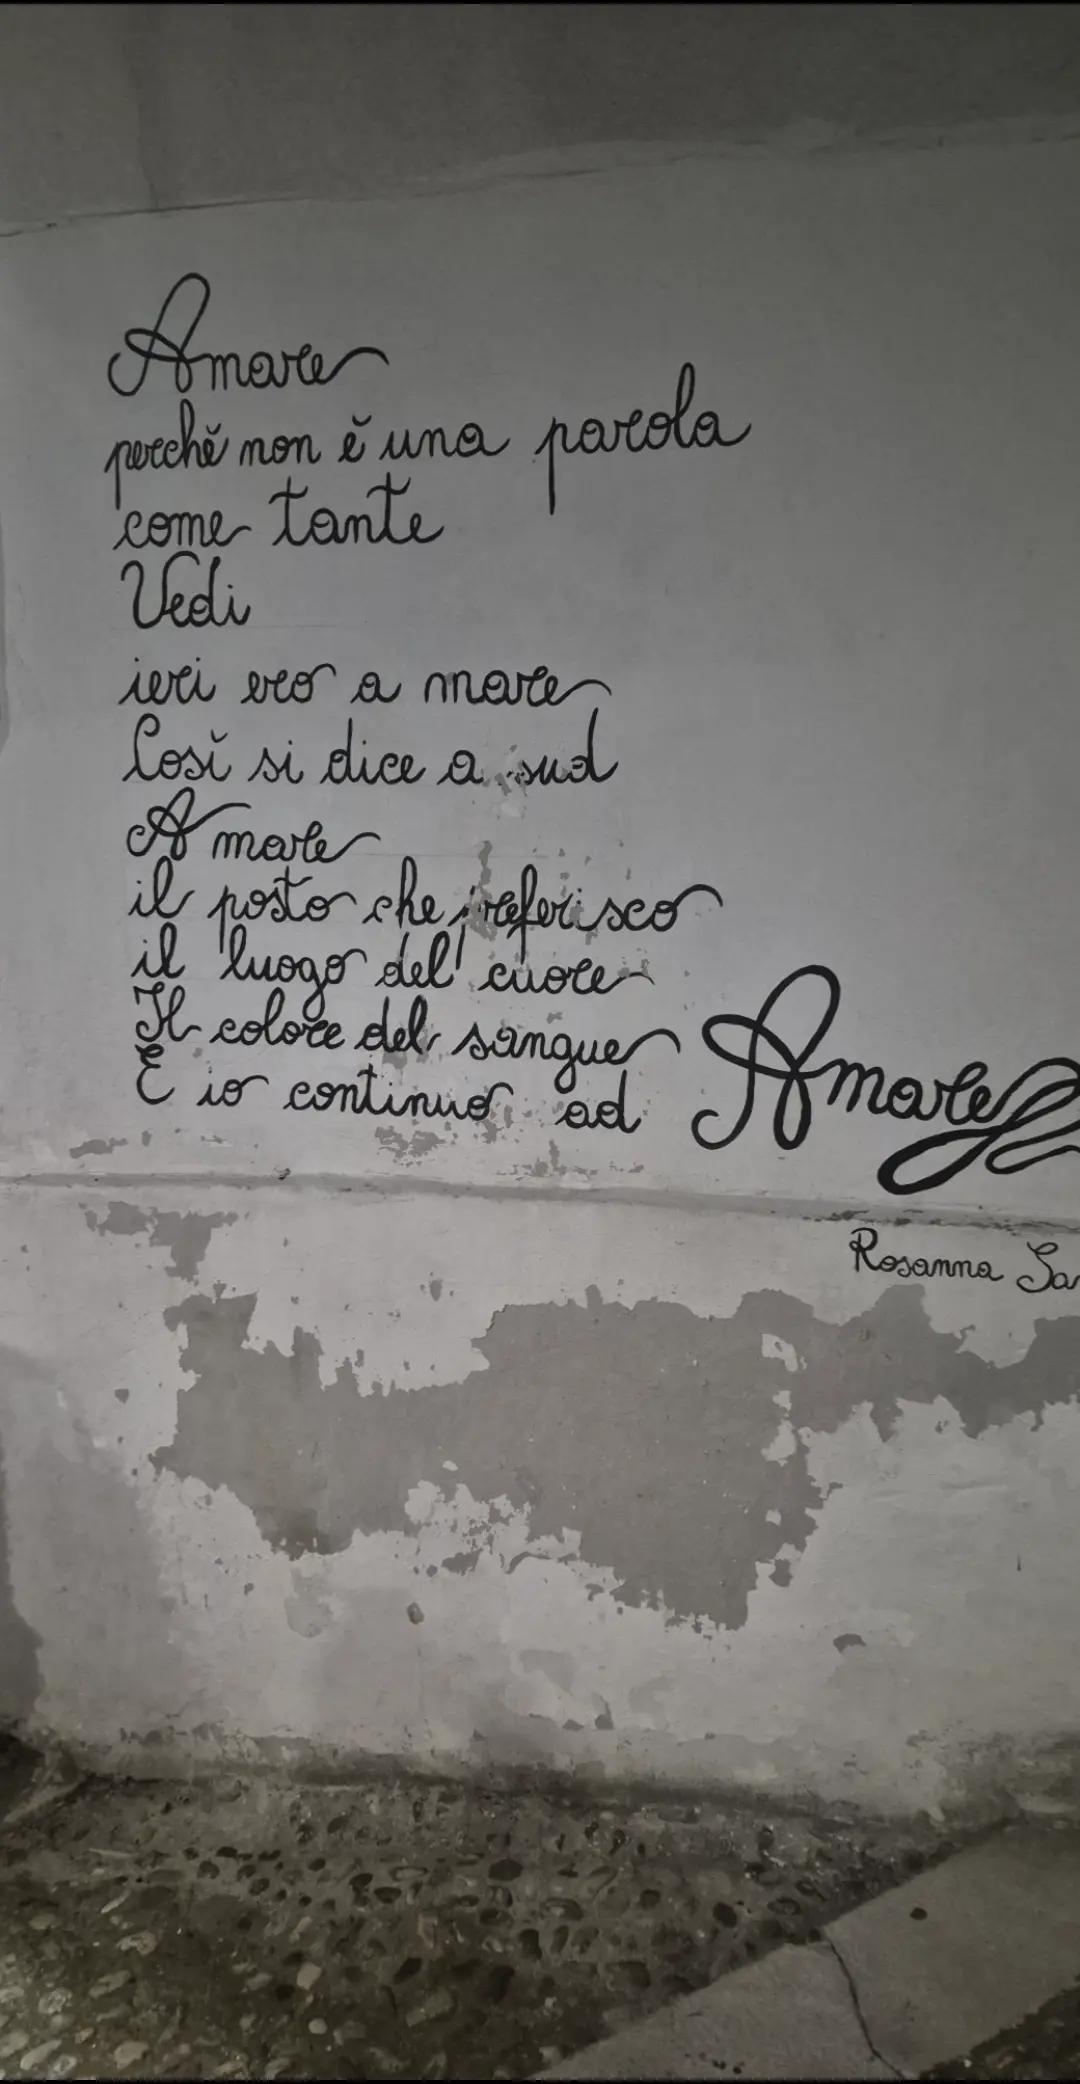 Amare
perchě non ě una parola
come tante
Vedi
ieri ero a mare
Cosĭ si dice a sud
A mare
il posto che preferisco
il luogo del cuore
Il colore del sangue
E io continuo ad Amare
Rosanna